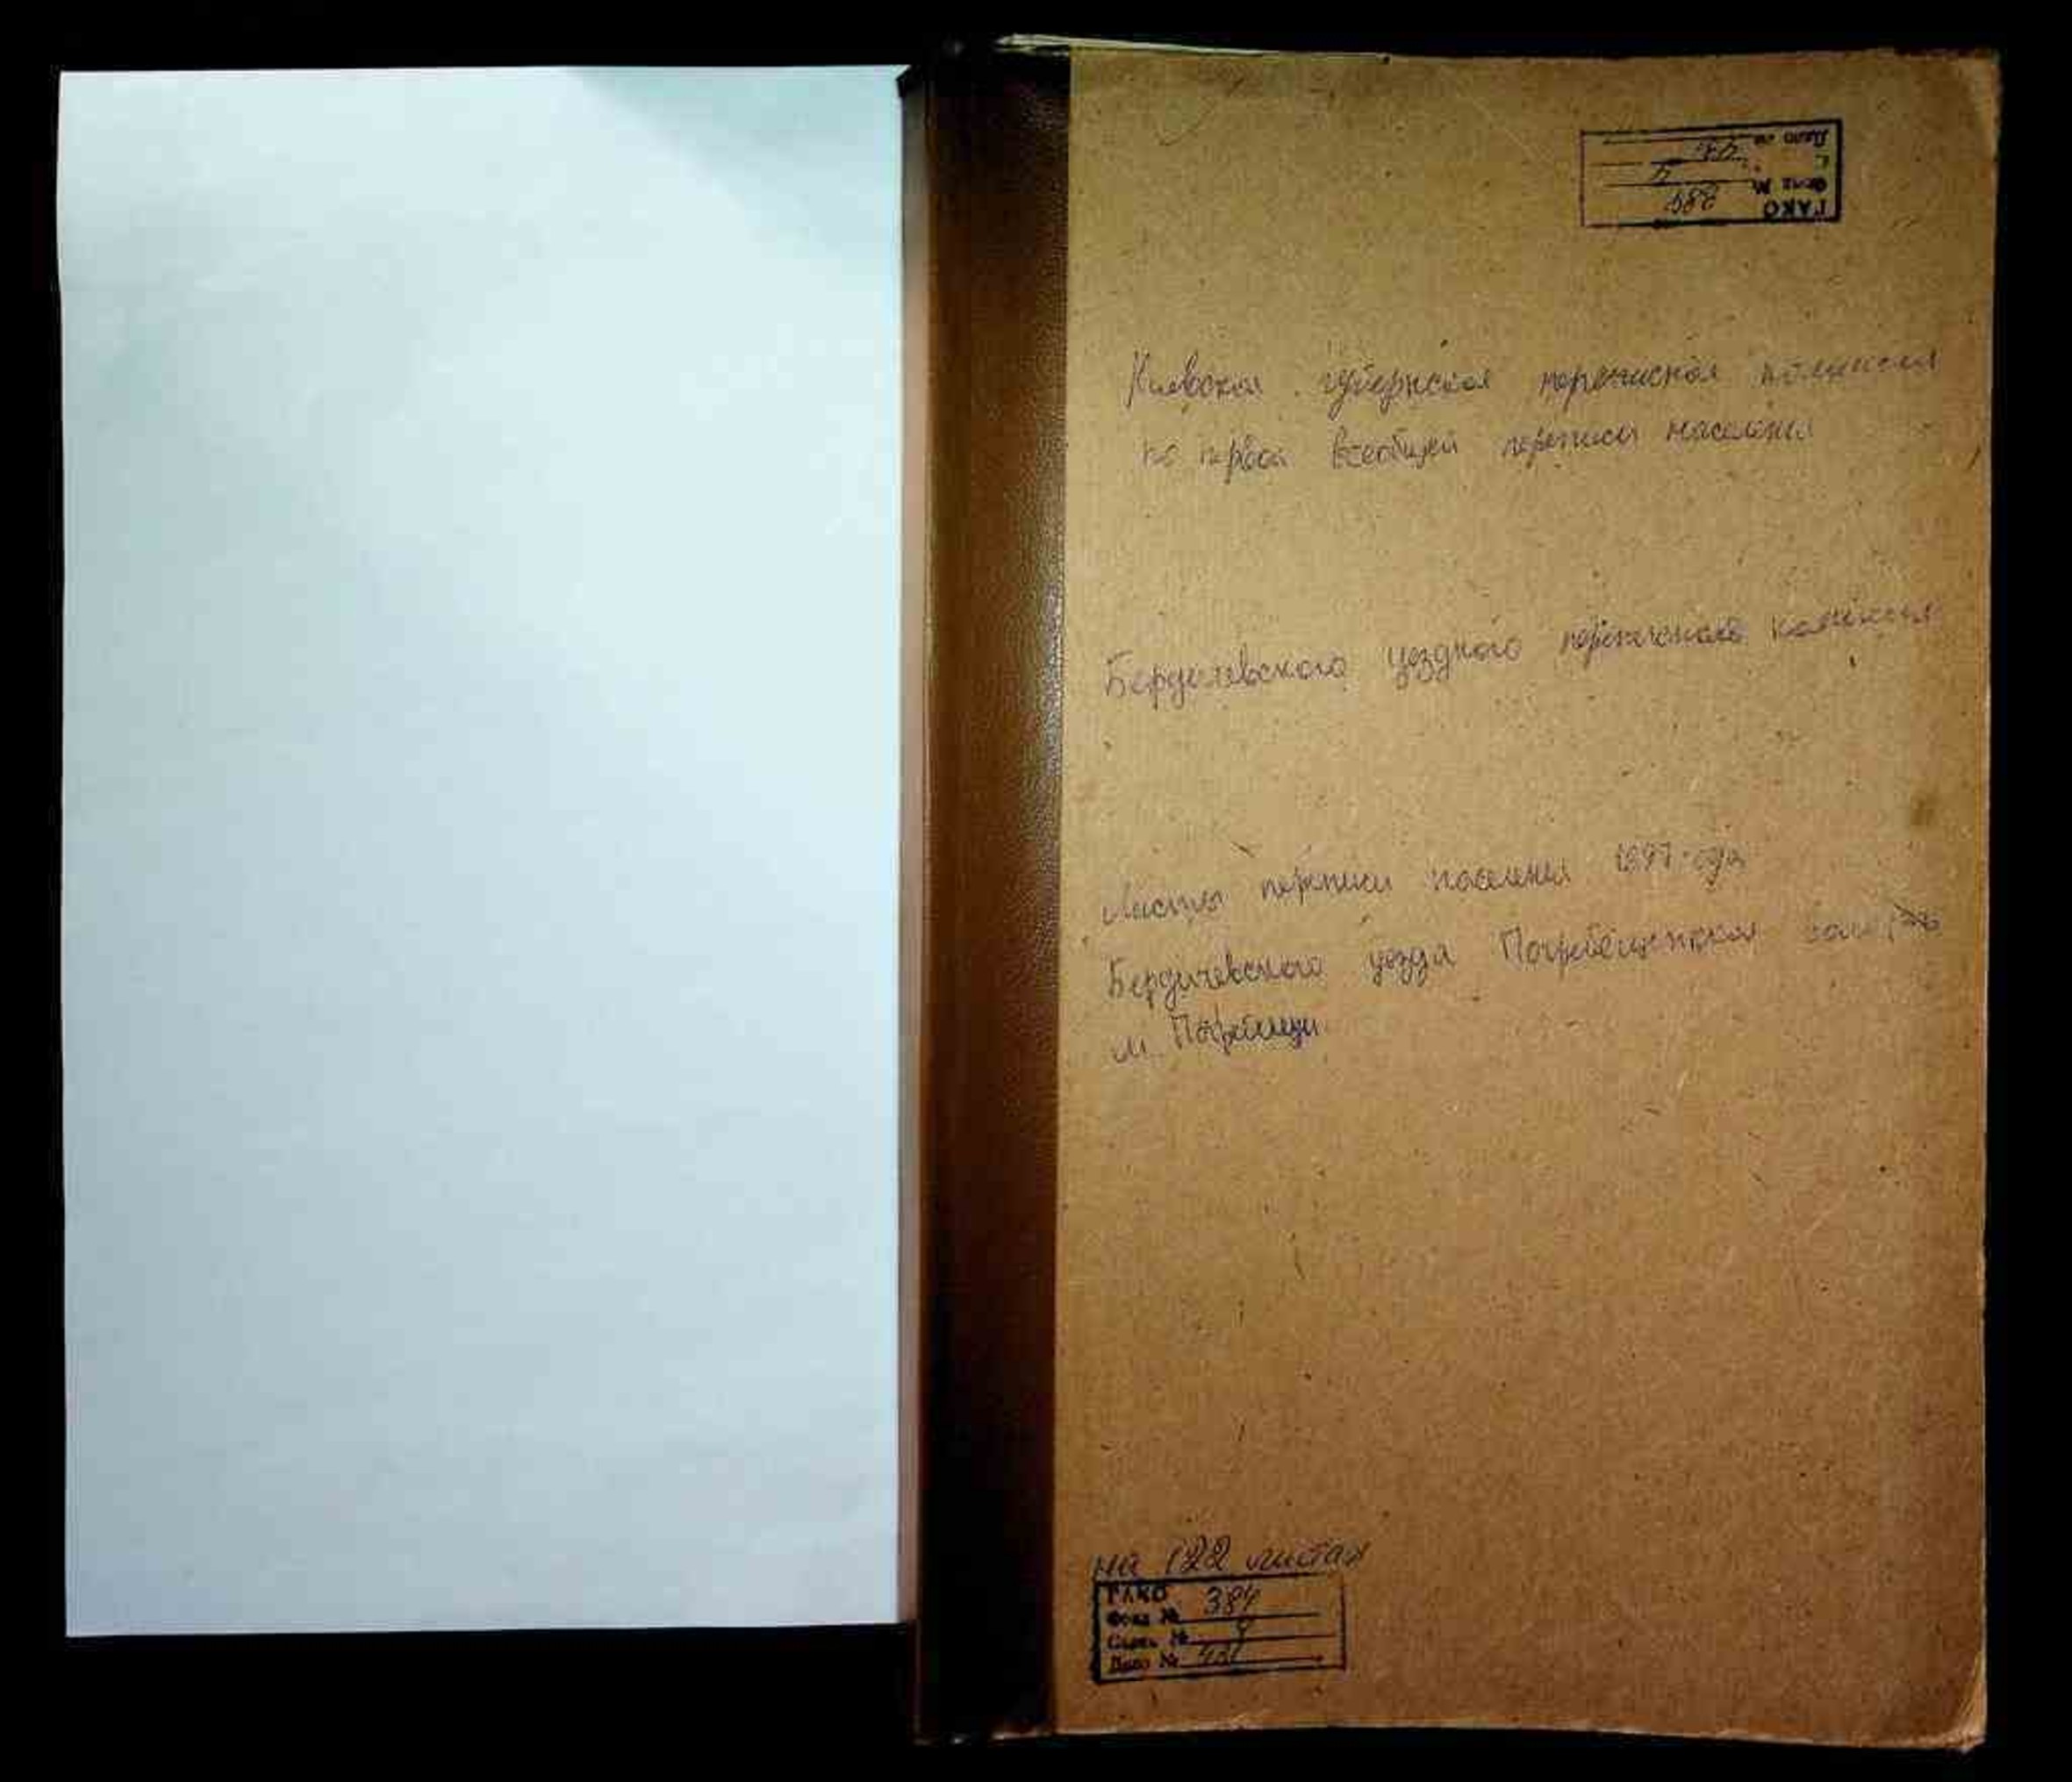 ГАКО
Фонд №
Дело №
Киевская губернская переписная комиссия
по первой всеобщей переписи населения
Бердичевского уездного переписного комиссия
Листы переписи населения 1897 года
Бердичевского уезда Погребищенская волость
м. Погребище
на 122 листах
ГАКО
Фонд № 384
Опись №
Дело №